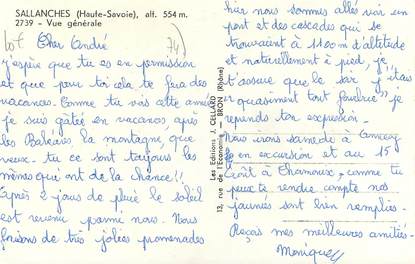 SALLANCHES (Haute-Savoie), alt. 554 m.
2739 - Vue générale
Cher André
J'espère que tu es en permission
et que pour toi cela te fera des
vacances. Comme tu vois cette année
je suis gâtée en vacances, après
les Baléares la montagne, que
veux-tu ce sont toujours les
mêmes qui ont de la chance!!
Après 2 jours de pluie le soleil
est revenu parmi nous. Nous
faisons de très jolies promenades
Les Editions J. CELLARD
13, rue de l'Economie - BRON (Rhône)
hier nous sommes allés voir un
pont et des cascades qui se
trouvaient à 1100 m d'altitude
et naturellement à pied, je
t'assure que le soir j'étais
"quasiment tout foudue" je
reprends ton expression.
Nous irons samedi à Annecy
en excursion et au 15
Août à Chamonix, comme tu
peux te rendre compte nos
journées sont bien remplies.
Reçois mes meilleures amitiés.
Monique